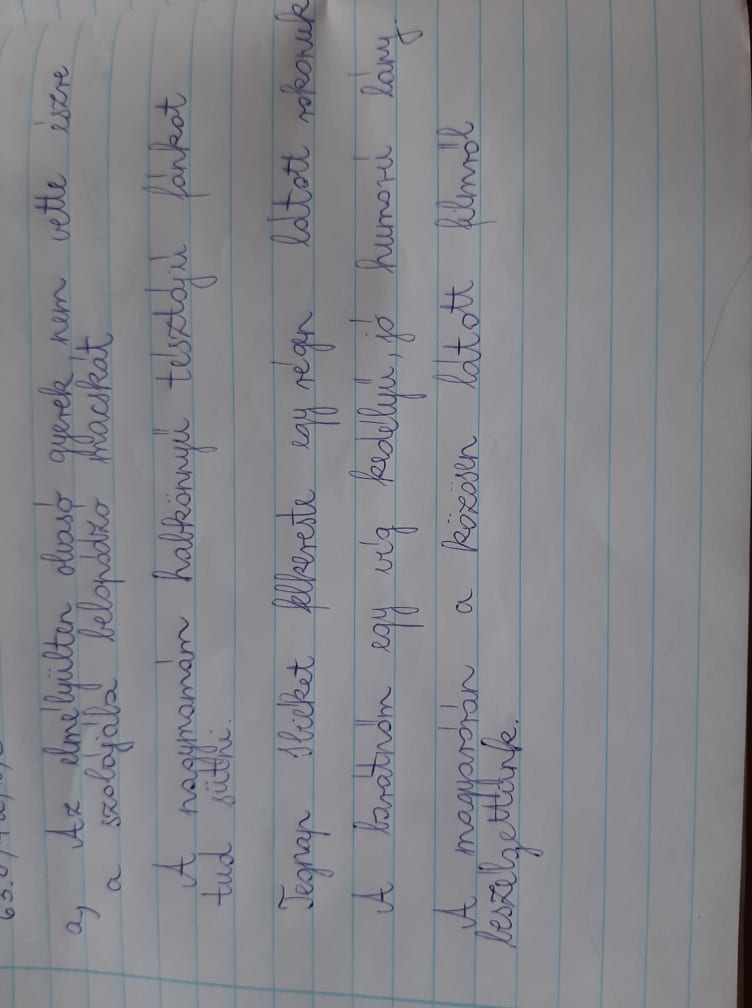 a, Az elmélyülten olvasó gyerek nem vette észre
a szobájába belopódzó macskát
A nagymamám habkönnyű tésztájú fánkot
tud sütni.
Tegnap felkereste egy régen látott rokonuk
A barátnőm egy víg kedélyű, jó humorú lány.
A magyarórán a közösen látott filmről
beszélgettünk.